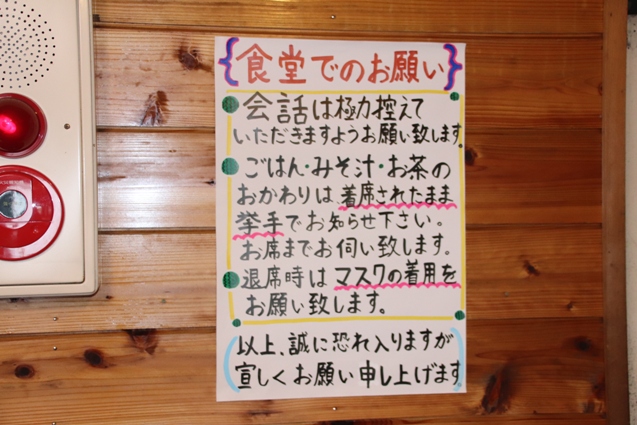 食堂でのお願い
会話は極力控えて
いただきますようお願い致します。
ごはん・みそ汁・お茶の
おかわりは着席されたまま
挙手でお知らせ下さい。
お席までお伺い致します。
退席時はマスクの着用を
お願い致します。
以上、誠に恐れ入りますが
宜しくお願い申し上げます。